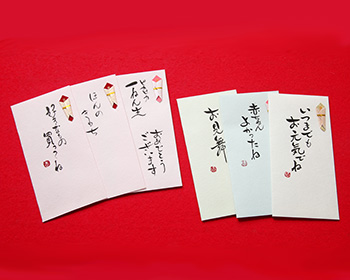 いつまでも
お元気でね
赤ちゃん
よかったね
お見舞
とうとう
一ねん生
おめでとう
ございます
ほんの
きもち
好きなもの
買ってね